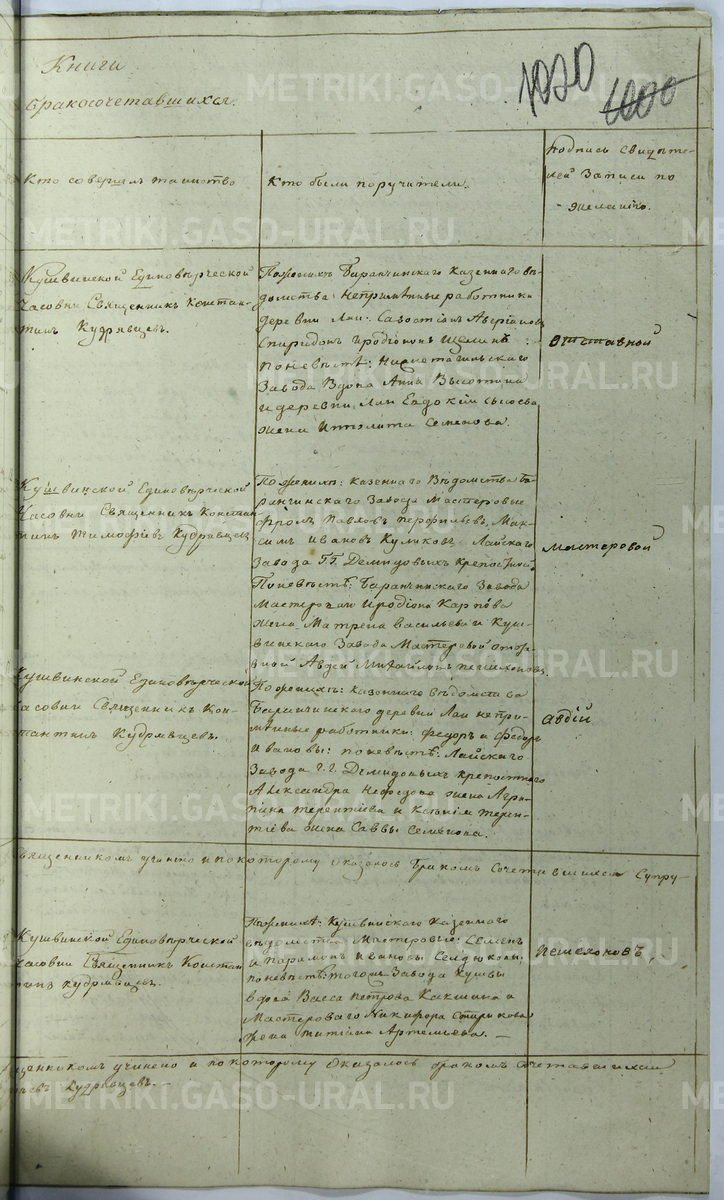 Книги
бракосочетавшихся.
1020
1000
Кто совершал таинство
Кто были поручители.
подпись свидѣте-
лей записи по
желанію.
Кушвинской Единовѣрческой
Часовни Священникъ Констан-
тинъ Кудрявцевъ.
Пожених: Баранчинскаго казеннаго вѣ-
домства непримѣнные работники
деревни Лаи: Савостіан Аверіановъ
Спиридонъ Иродіонов
поневѣстѣ: Нижнетагильскаго
Завода Вдова Анна
и деревни Лаи Евдокія Сысоева
жена Иполита Семенова.
отставной
Кушвинской Единовѣрческой
Часовни Священникъ Констан-
тинъ Тимофѣевъ Кудрявцевъ
Поженихѣ: казеннаго Вѣдомства Ба-
ранчинскаго Завода Мастеровые
Фролъ Павловъ Перфильевъ, Мак-
симъ Ивановъ Куликовъ Лайскаго
Завода ГГ. Демидовыхъ крепостной.
Поневѣстѣ: Баранчинскаго Завода
Мастероваго Иродіона Карпова
жена Матрена Васильева и Куш-
винскаго Завода Мастеровой
Авдей Михайловъ Пешехоновъ.
мастеровой
Кушвинской Единовѣрческой
Часовни Священникъ Кон-
стантинъ Кудрявцевъ.
Поженихѣ: казеннаго вѣдомства
Баранчинскаго деревни Лаи непри-
мѣнные работники: Федоръ и Федоръ
Ивановы: поневѣстѣ: Лайскаго
Завода Г.Г. Демидовыхъ крепостнаго
Александра Нефедова жена Агри-
пина Терентіева и Ксенія Терен-
тіева жена Саввы Семенова.
Авдій
Священникомъ учинено и по которому оказалось бракомъ сочетавшихся супру-
Кушвинской Единовѣрческой
Часовни Священникъ Констан
тинъ Кудрявцевъ.
Поженихѣ: Кушвинскаго казеннаго
вѣдомства Мастеровые: Семенъ
и Парамонъ Ивановы
поневѣстѣ: тогожъ Завода Кушвы
вдова Васса Петрова Какшина и
Мастероваго Никифора Старикова
жена Татіана Артемьева.
Пешехоновъ.
священникомъ учинено и по которому оказалось бракомъ сочетавшихся
Кудрявцевъ.
METRIKI.GASO-URAL.RU